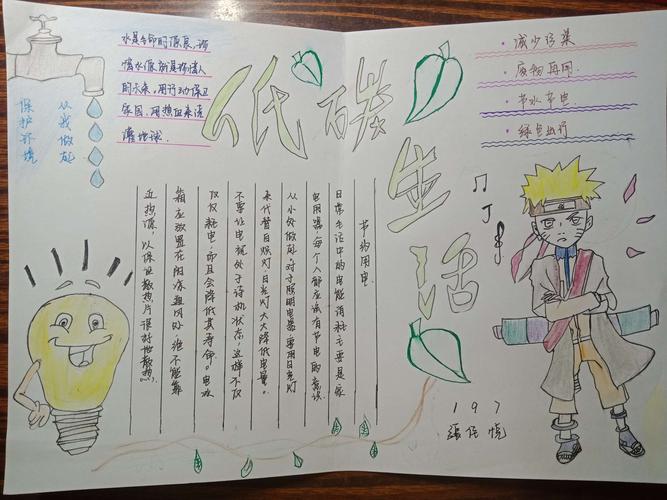 水是生命的源泉，珍
惜水源就是珍惜人
的未来，用行动保卫
家园，用热血来浇
灌地球。
从我做起
保护环境
低碳
生活
· 减少污染
· 废物再用
· 节水节电
· 绿色出行
节约用电
日常生活中的电能消耗主要是家
电用器，每个人都应该有节电的意识
从小处做起，对于照明电器，要用日光灯
来代替白炽灯日光灯大大降低电量。
不要让电视处于待机状态，这样不仅
仅仅耗电，而且会降低其寿命。电冰
箱应放置在阴凉通风处，绝不能靠
近热源，以保证散热片很好地散热。
197